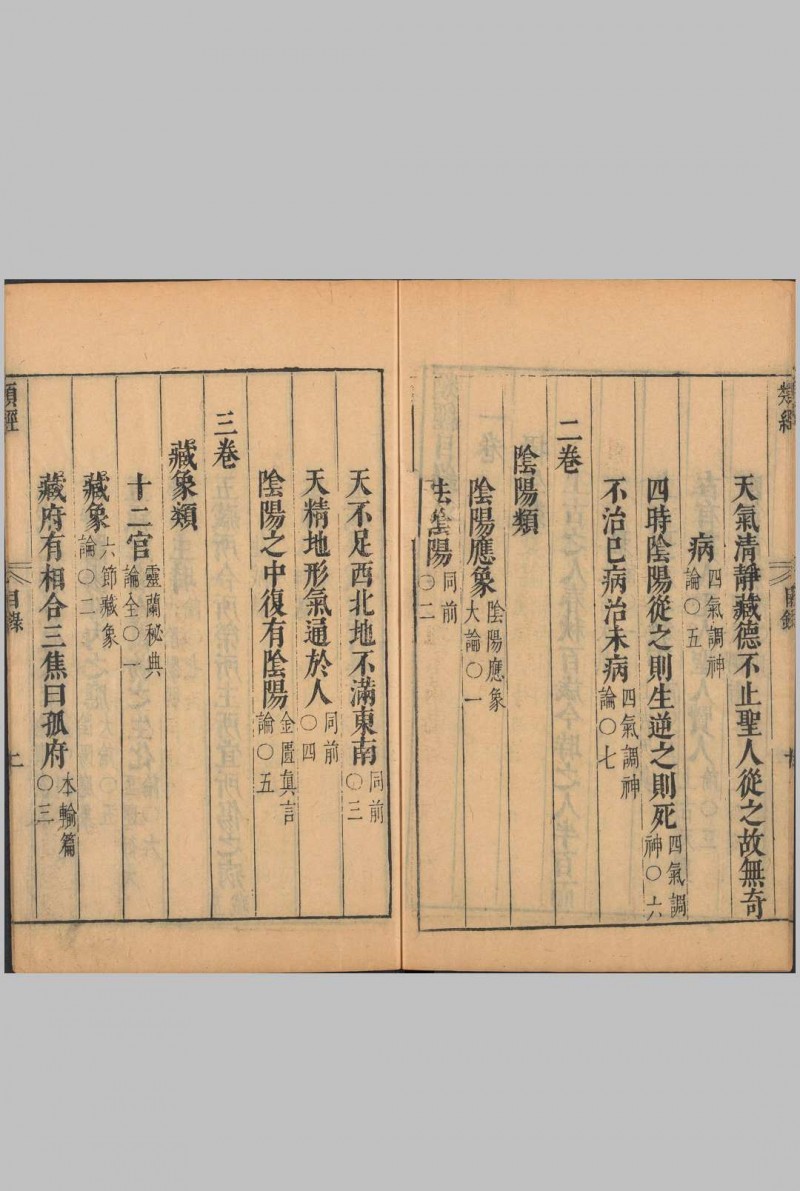 天氣清靜藏德不止聖人從之故無奇
病四氣調神論○五
四時陰陽從之則生逆之則死四氣調神○六
不治已病治未病四氣調神論○七
二卷
陰陽類
陰陽應象陰陽應象大論○一
法陰陽同前○二
類經
目錄
天不足西北地不滿東南同前○三
天精地形氣通於人同前○四
陰陽之中復有陰陽金匱真言論○五
三卷
藏象類
十二官靈蘭秘典論全○一
藏象六節藏象論○二
藏府有相合三焦曰孤府本輸篇○三
類經
目錄